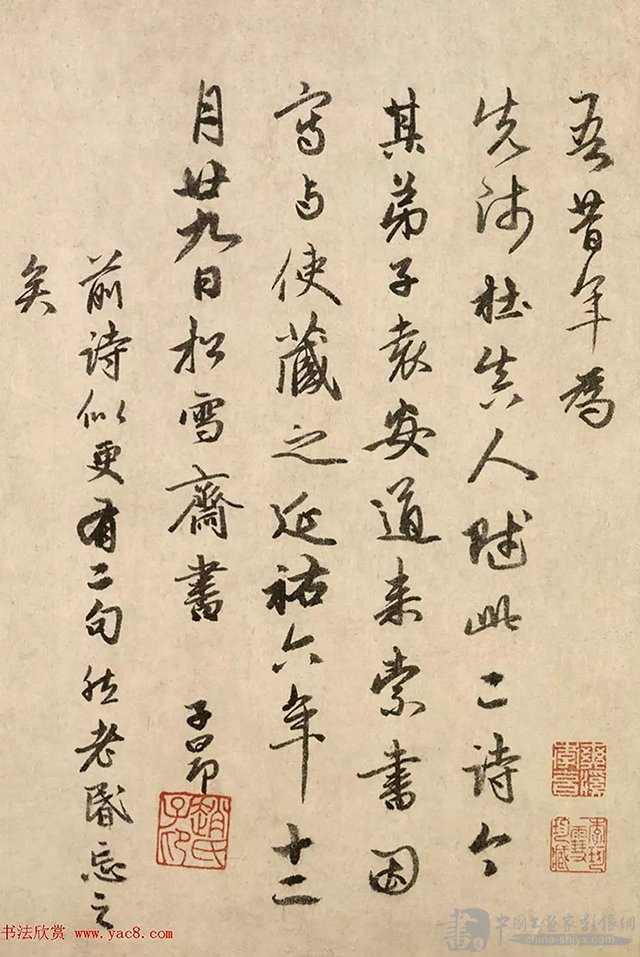 吾昔年為
先師杜真人賦此二詩今
其弟子袁安道來索書因
寫与使藏之延祐六年十二
月廿九日松雪齋書 子昂
趙氏子昂
前詩似更有二句然老昬忘之
矣
书法欣赏 www.yac8.com
書 中国书画家影像网
china-shiyx.com